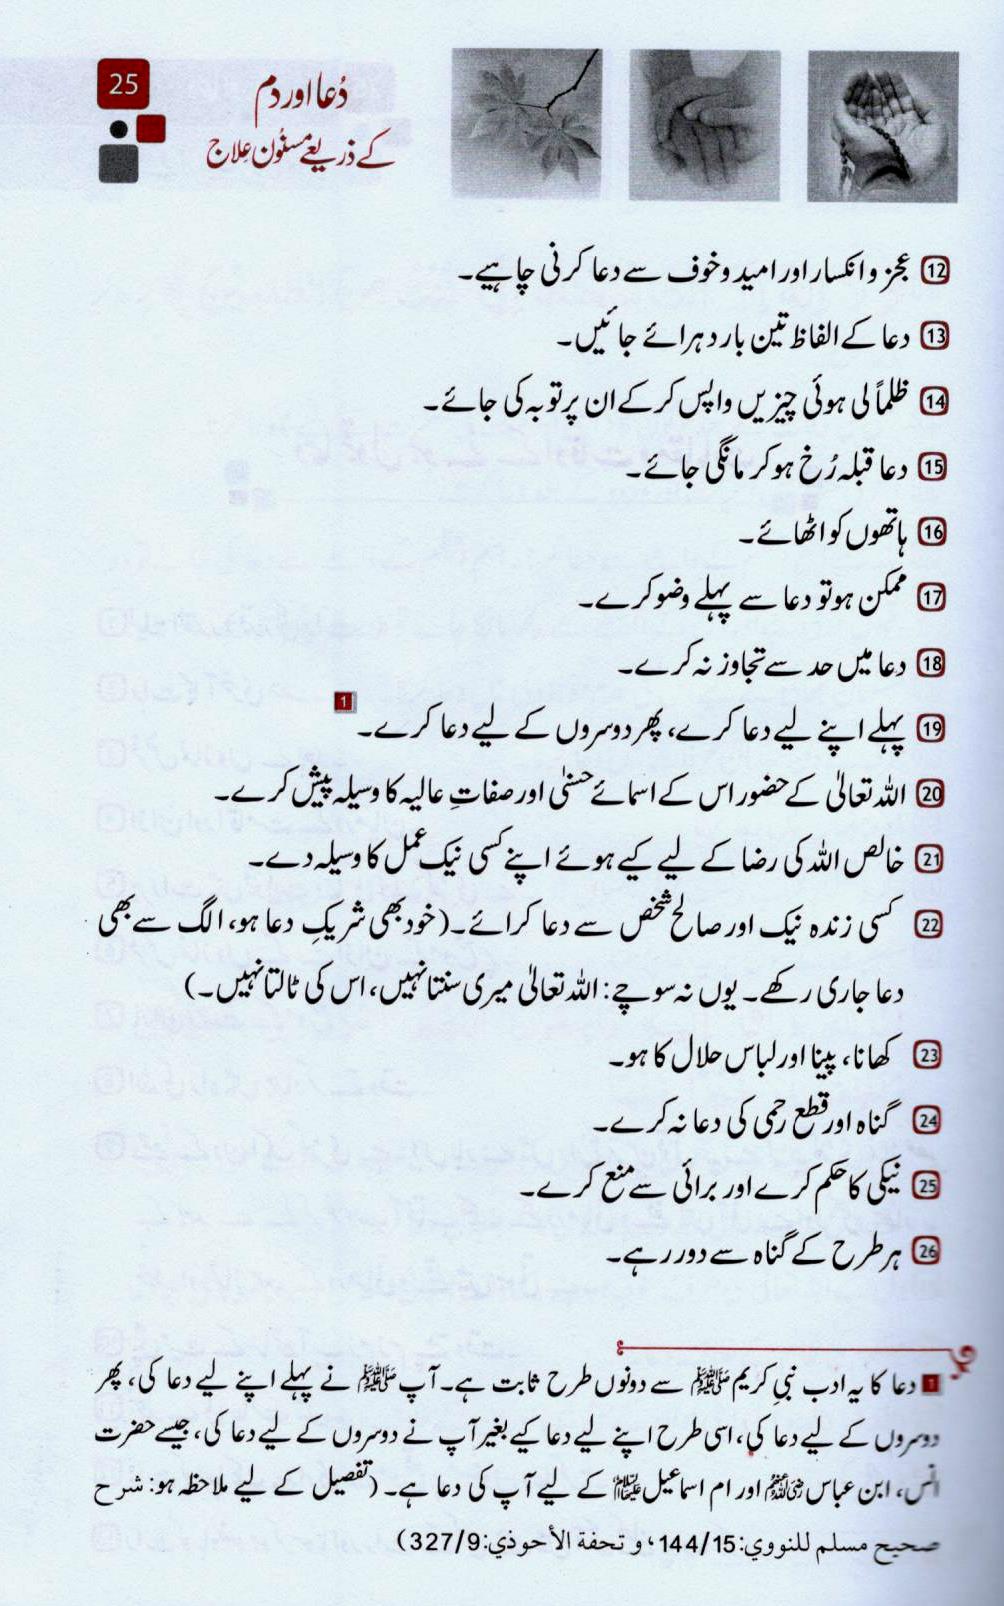 25
دُعا اور دَم
کے ذریعے مسنُون عِلاج
12 عجز و انکسار اور امید و خوف سے دعا کرنی چاہیے۔
13 دعا کے الفاظ تین بار دہرائے جائیں۔
14 ظلماً لی ہوئی چیزیں واپس کر کے ان پر توبہ کی جائے۔
15 دعا قبلہ رُخ ہو کر مانگی جائے۔
16 ہاتھوں کو اٹھائے۔
17 ممکن ہو تو دعا سے پہلے وضو کرے۔
18 دعا میں حد سے تجاوز نہ کرے۔
19 پہلے اپنے لیے دعا کرے، پھر دوسروں کے لیے دعا کرے۔ 1
20 اللہ تعالیٰ کے حضور اس کے اسمائے حسنٰی اور صفاتِ عالیہ کا وسیلہ پیش کرے۔
21 خالص اللہ کی رضا کے لیے کیے ہوئے اپنے کسی نیک عمل کا وسیلہ دے۔
22 کسی زندہ نیک اور صالح شخص سے دعا کرائے۔ (خود بھی شریکِ دعا ہو، الگ سے بھی
دعا جاری رکھے۔ یوں نہ سوچے: اللہ تعالیٰ میری سنتا نہیں، اس کی ٹالتا نہیں۔)
23 کھانا، پینا اور لباس حلال کا ہو۔
24 گناہ اور قطع رحمی کی دعا نہ کرے۔
25 نیکی کا حکم کرے اور برائی سے منع کرے۔
26 ہر طرح کے گناہ سے دور رہے۔
1 دعا کا یہ ادب نبیِ کریم ﷺ سے دونوں طرح ثابت ہے۔ آپ ﷺ نے پہلے اپنے لیے دعا کی، پھر
دوسروں کے لیے دعا کی، اسی طرح اپنے لیے دعا کیے بغیر آپ نے دوسروں کے لیے دعا کی، جیسے حضرت
انس، ابن عباس رضی اللہ عنہم اور ام اسماعیل علیہا السلام کے لیے آپ کی دعا ہے۔ (تفصیل کے لیے ملاحظہ ہو: شرح
صحیح مسلم للنووي: 144/15، و تحفة الأحوذي: 327/9)